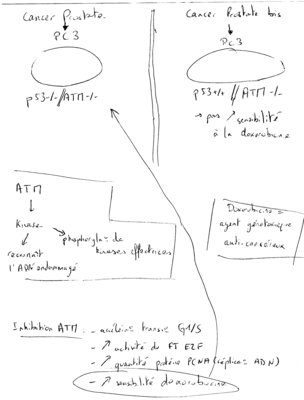 Cancer Prostate
PC3
p53-/- // ATM-/-
Cancer Prostate bis
PC3
p53+/+ // ATM-/-
→ pas ↗ sensibilité
à la doxorubicine
ATM
Kinase
reconnaît
l'ADN endommagé
phosphoryla° de
kinases effectrices
Doxorubicine =
agent génotoxique
anti-cancéreux
Inhibition ATM : - accélère transi° G1/S
- ↗ activité de FT E2F
- ↗ quantité protéine PCNA (réplica° ADN)
- ↗ sensibilité doxorubicine